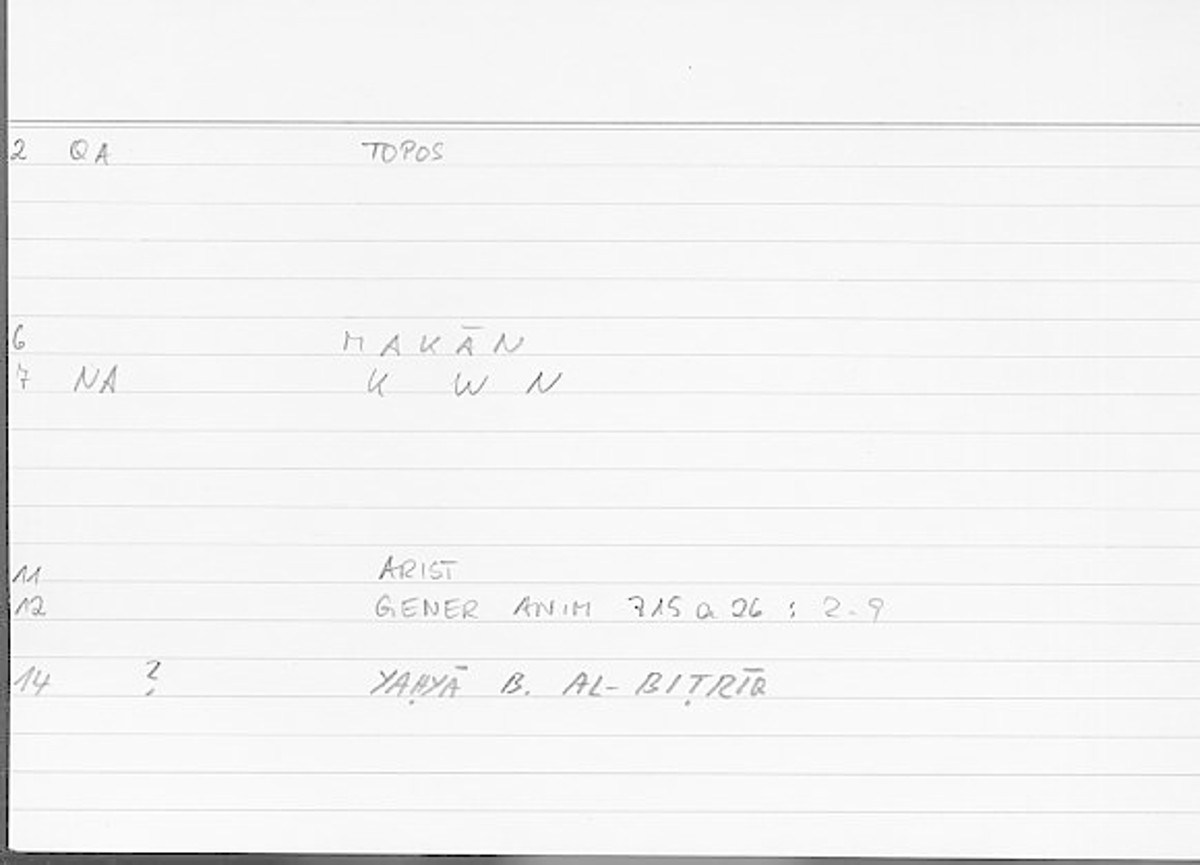 2 QA TOPOS
6 MAKĀN
7 NA K W N
11 ARIST
12 GENER ANIM 715 a 26 : 2.9
14 ? YAḤYĀ B. AL-BIṬRĪQ